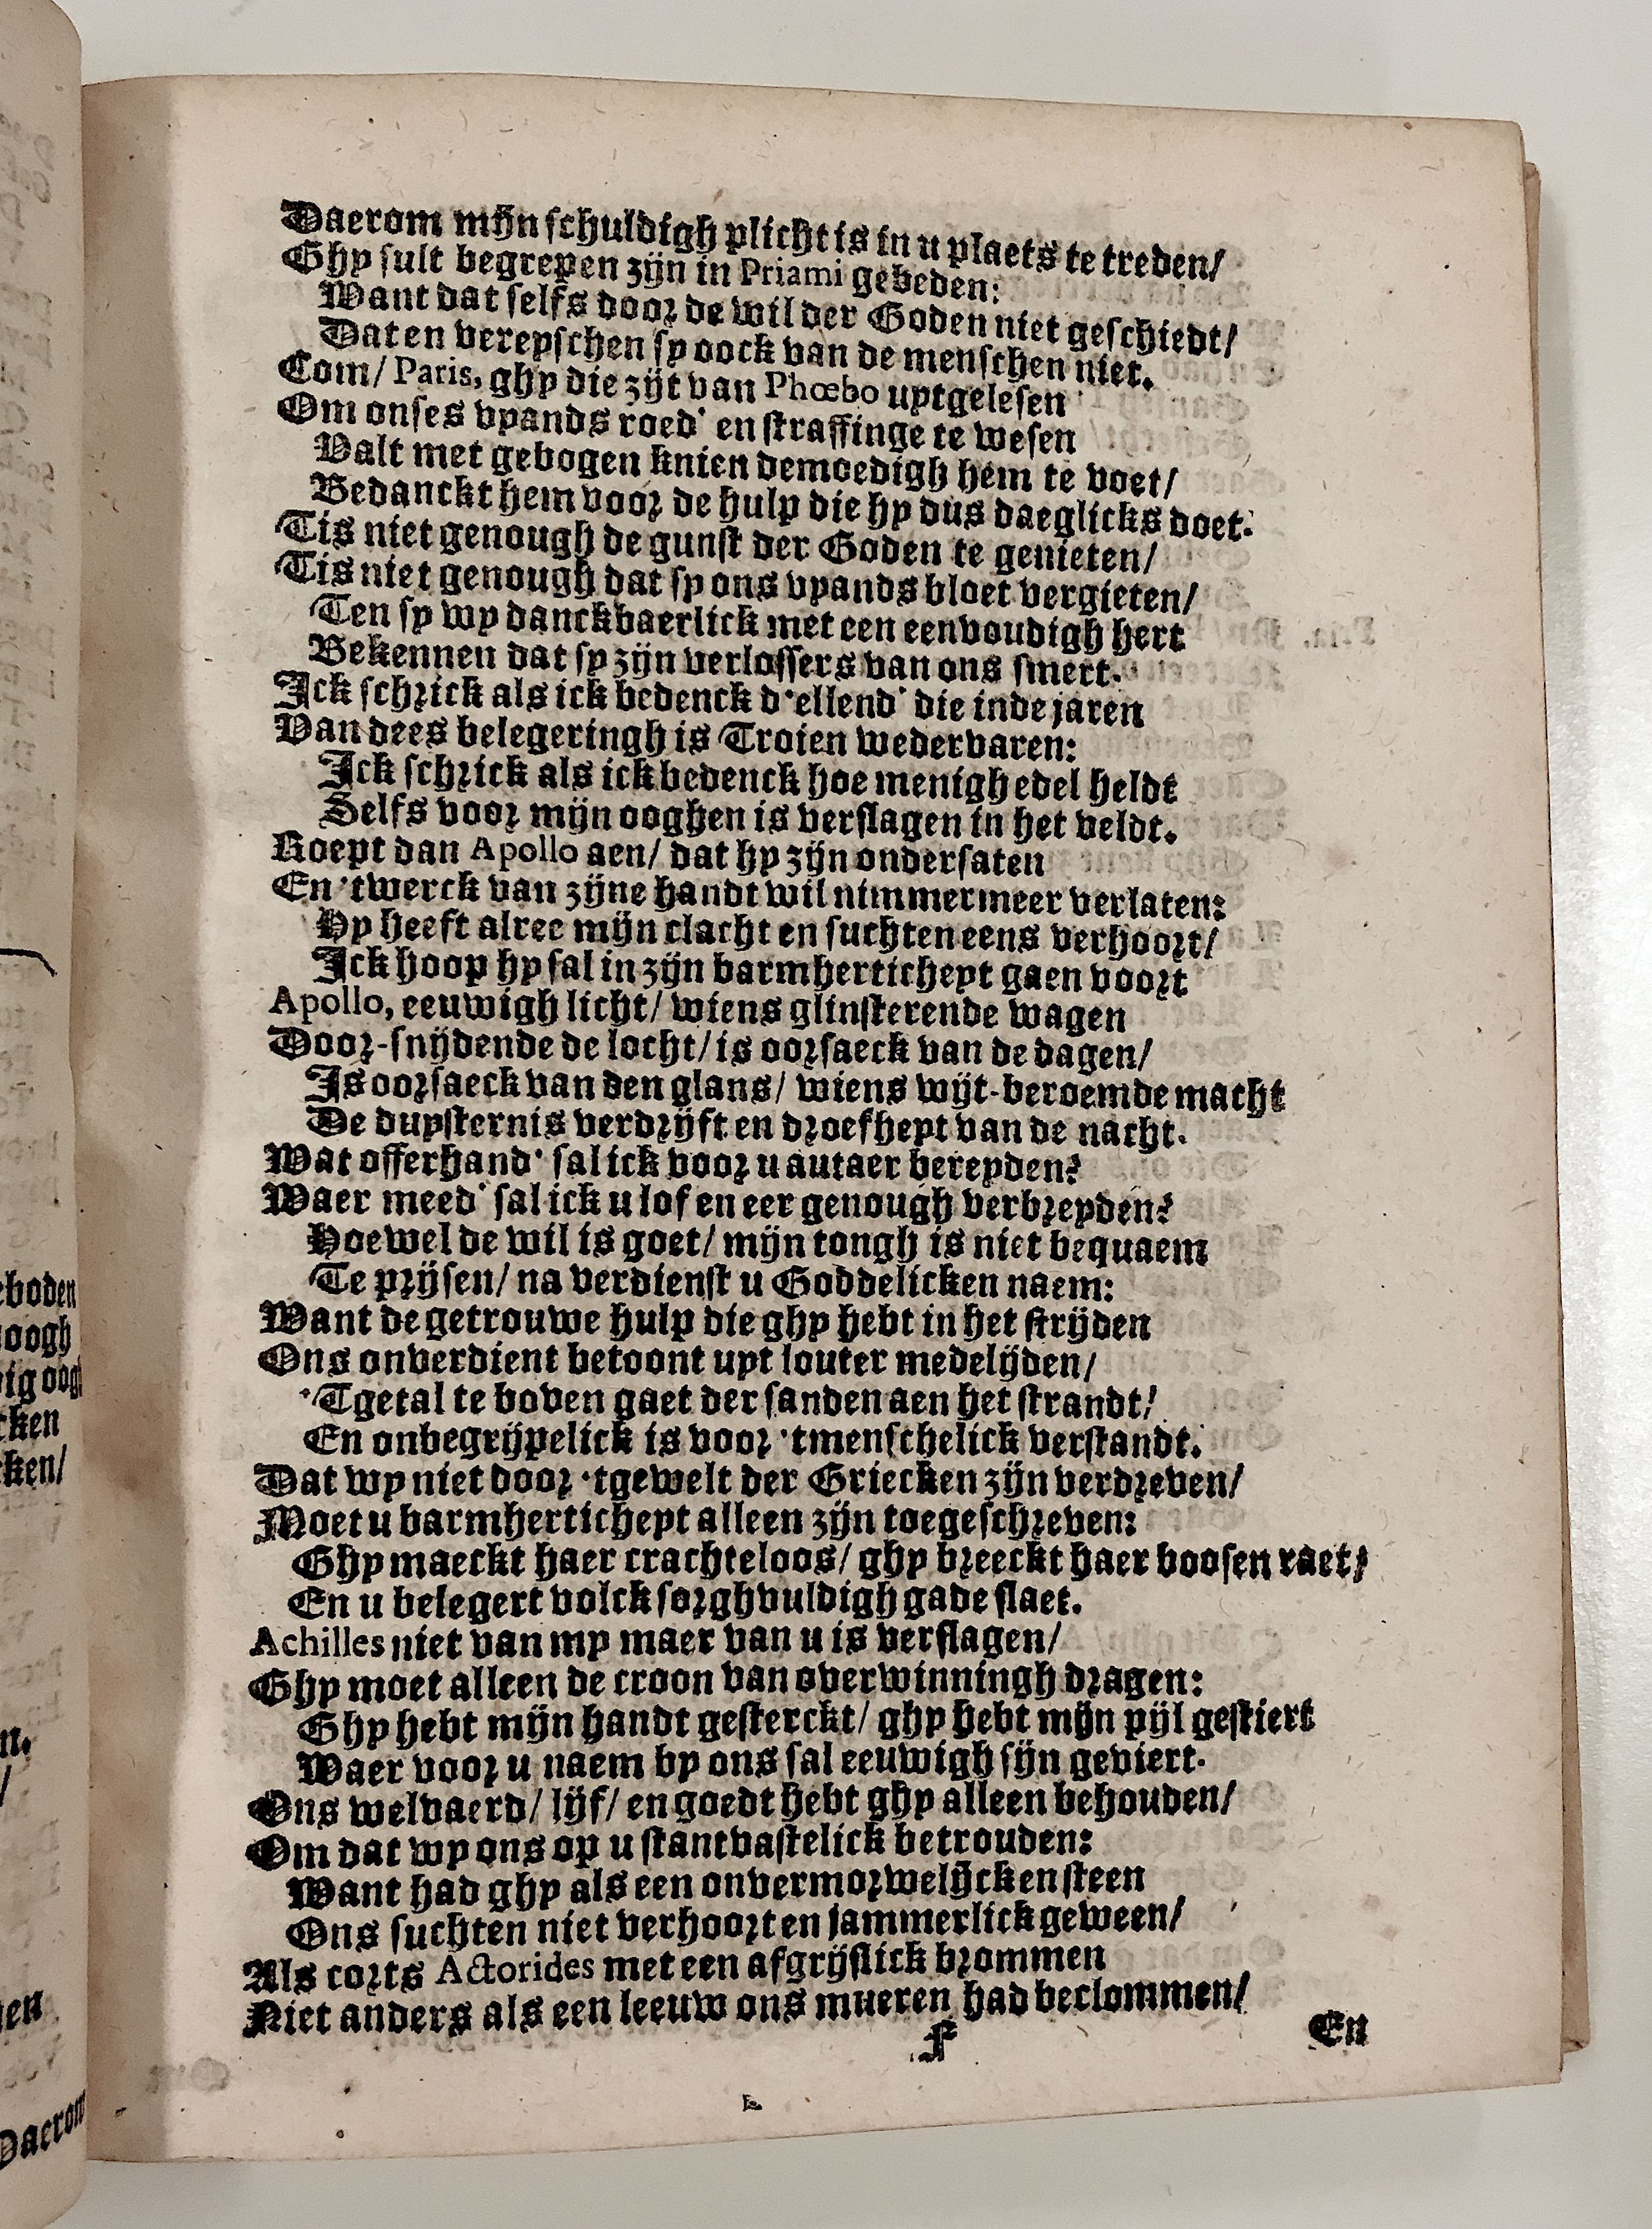 Daerom mijn schuldigh plicht is in u plaets te treden/
Ghy sult begrepen zijn in Priami gebeden:
Want dat selfs door de wil der Goden niet geschiedt/
Dat en vereyschen sy oock van de menschen niet.
Com/ Paris, ghy die zijt van Phœbo uytgelesen
Om onses vyands roed' en straffinge te wesen
Valt met gebogen knien demoedigh hem te voet/
Bedanckt hem voor de hulp die hy dus daeglicks doet.
Tis niet genough de gunst der Goden te genieten/
Tis niet genough dat sy ons vyands bloet vergieten/
Ten sy wy danckbaerlick met een eenvoudigh hert
Bekennen dat sy zijn verlossers van ons smert.
Ick schrick als ick bedenck d'ellend' die inde jaren
Van dees belegeringh is Troien wedervaren:
Ick schrick als ick bedenck hoe menigh edel heldt
Selfs voor mijn ooghen is verslagen in het veldt.
Roept dan Apollo aen/ dat hy zijn ondersaten
En 'twerck van zijne handt wil nimmermeer verlaten:
Hy heeft alree mijn clacht en suchten eens verhoort/
Ick hoop hy sal in zijn barmhertichept gaen voort
Apollo, eeuwigh licht/ wiens glinsterende wagen
Door-snijdende de locht/ is oorsaeck van de dagen/
Is oorsaeck van den glans/ wiens wijt-beroemde macht
De duysternis verdrijft en droefheyt van de nacht.
Wat offerhand' sal ick voor u autaer bereyden?
Waer meed' sal ick u lof en eer genough verbreyden?
Hoewel de wil is goet/ mijn tongh is niet bequaem
Te prijsen/ na verdienst u Goddelicken naem:
Want de getrouwe hulp die ghy hebt in het strijden
Ons onverdient betoont uyt louter medelijden/
'Tgetal te boven gaet der sanden aen het strandt/
En onbegrijpelick is voor 'tmenschelick verstandt.
Dat wy niet door 'tgewelt der Griecken zijn verdreven/
Moet u barmhertichept alleen zijn toegeschreven:
Ghy maeckt haer crachteloos/ ghy breeckt haer boosen raet/
En u belegert volck sorghvuldigh gade slaet.
Achilles niet van my maer van u is verslagen/
Ghy moet alleen de croon van overwinningh dragen:
Ghy hebt mijn handt gesterckt/ ghy hebt mijn pijl gestiert
Waer voor u naem by ons sal eeuwigh sijn geviert.
Ons welvaerd/ lijf/ en goedt hebt ghy alleen behouden/
Om dat wy ons op u stantvastelick betrouden:
Want had ghy als een onvermorwelijcken steen
Ons suchten niet verhoort en jammerlick geween/
Als corts Actorides met een afgrijslick brommen
Niet anders als een leeuw ons mueren had beclommen/
F
En